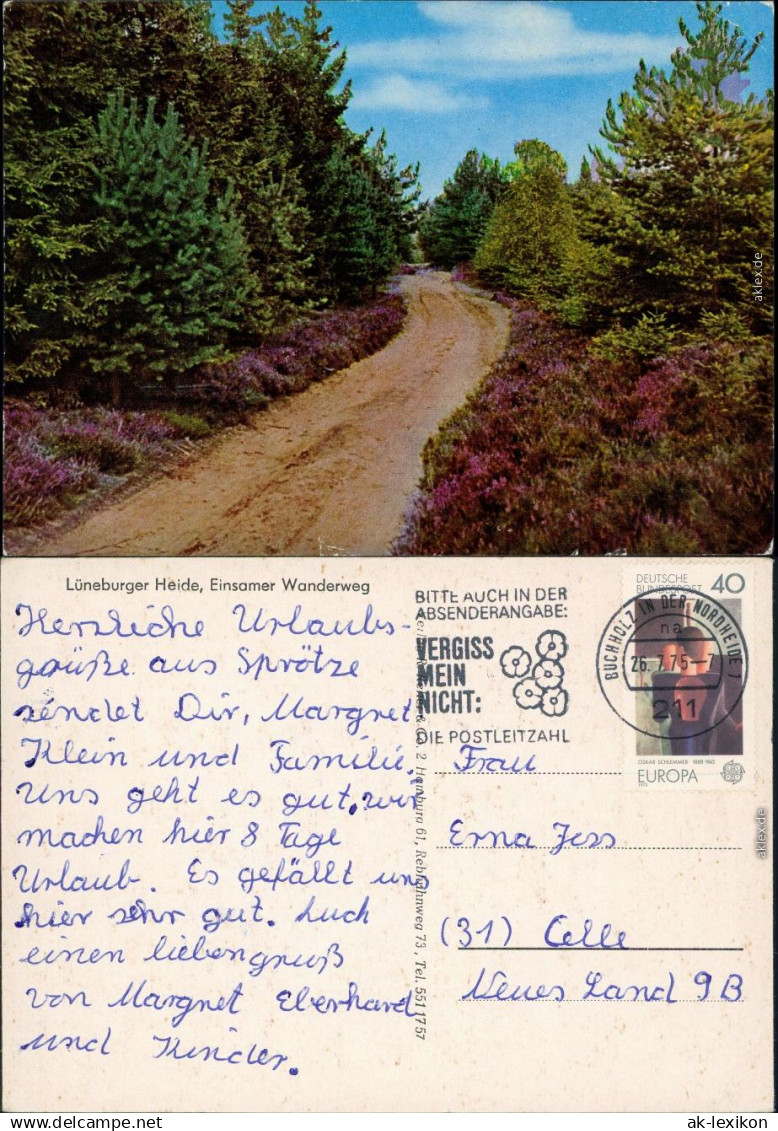 aklex.de
Lüneburger Heide, Einsamer Wanderweg
Herzliche Urlaubs-
grüße aus Sprötze
sendet Dir, Margret
Klein und Familie.
Uns geht es gut, wir
machen hier 8 Tage
Urlaub. Es gefällt uns
hier sehr gut. Auch
einen liebengruß
von Margret Eberhard
und Kinder.
BITTE AUCH IN DER
ABSENDERANGABE:
VERGISS
MEIN
NICHT:
DIE POSTLEITZAHL
DEUTSCHE
BUNDESPOST 40
BUCHHOLZ IN DER NORDHEIDE 1
na
26.7.75-7
211
OSKAR SCHLEMMER 1888-1943
EUROPA
1975
Hamburg 61, Rebhuhnweg 73, Tel. 5511757
Frau
Erna Jess
(31) Celle
Neues Land 9B
aklex.de
www.delcampe.net
ak-lexikon